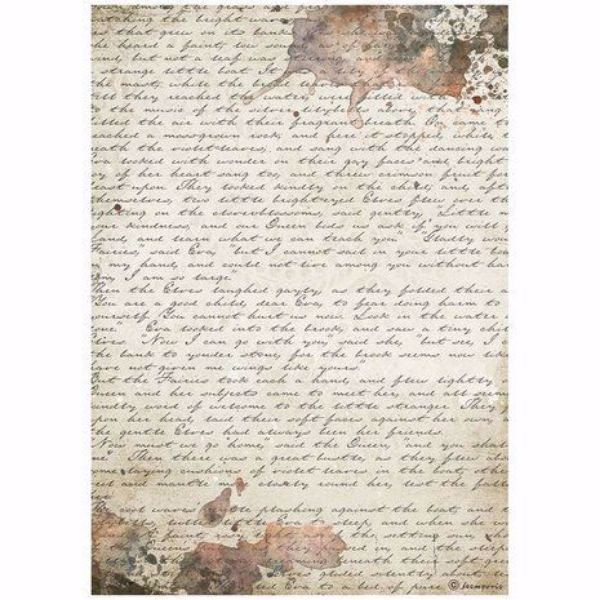 tching the bright waves
s that grew on its bank
he heard a faint, low sound, as of far
nd, but not a leaf was stirring
strange little boat. It
the mast, while the broad
till they reached the water, were filled with
to the music of the silver lilybells that
filled the air with their fragrant breath. On, came
eached a moss-grown rock; and here it stopped, while
eath the violet-leaves, and sang with the dancing wa
Eva looked with wonder on their gay faces and bright
y of her heart sang too, and threw crimson fruit for
east upon. They looked kindly on the child, and, aft
themselves, two little bright-eyed Elves flew over th
ighting on the clover-blossoms, said gently, "Little m
our kindness, and our Queen bids us ask if you will
Land, and learn what we can teach you." "Gladly wou
Fairies," said Eva, "but I cannot sail in your little boa
n my hand, and could not live among you without ha
om, I am so large."
Then the Elves laughed gayly, as they folded their a
You are a good child, dear Eva, to fear doing harm to
ourself. You cannot hurt us now. Look in the water
one." Eva looked into the brook, and saw a tiny chil
lves. "Now I can go with you," said she, "but see, I
the bank to yonder stone, for the brook seems now like
have not given me wings like yours."
But the Fairies took each a hand, and flew lightly
Queen and her subjects came to meet her, and all seem
indly word of welcome to the little stranger. They
pon her head, laid their soft faces against her own, a
the gentle Elves had always been her friends.
"Now must we go home," said the Queen, and you shal
me." Then there was a great bustle, as they flew abo
ome laying cushions of violet leaves in the boat, othe
eil and mantle more closely round her, lest the fall
The cool waves gentle plashing against the boat, and t
bells, lulled little Eva to sleep, and when she wo
the setting sun, sho
in, and the sleep
gleamed
glided silently
ed Eva to a bed of pure
© Stamperia